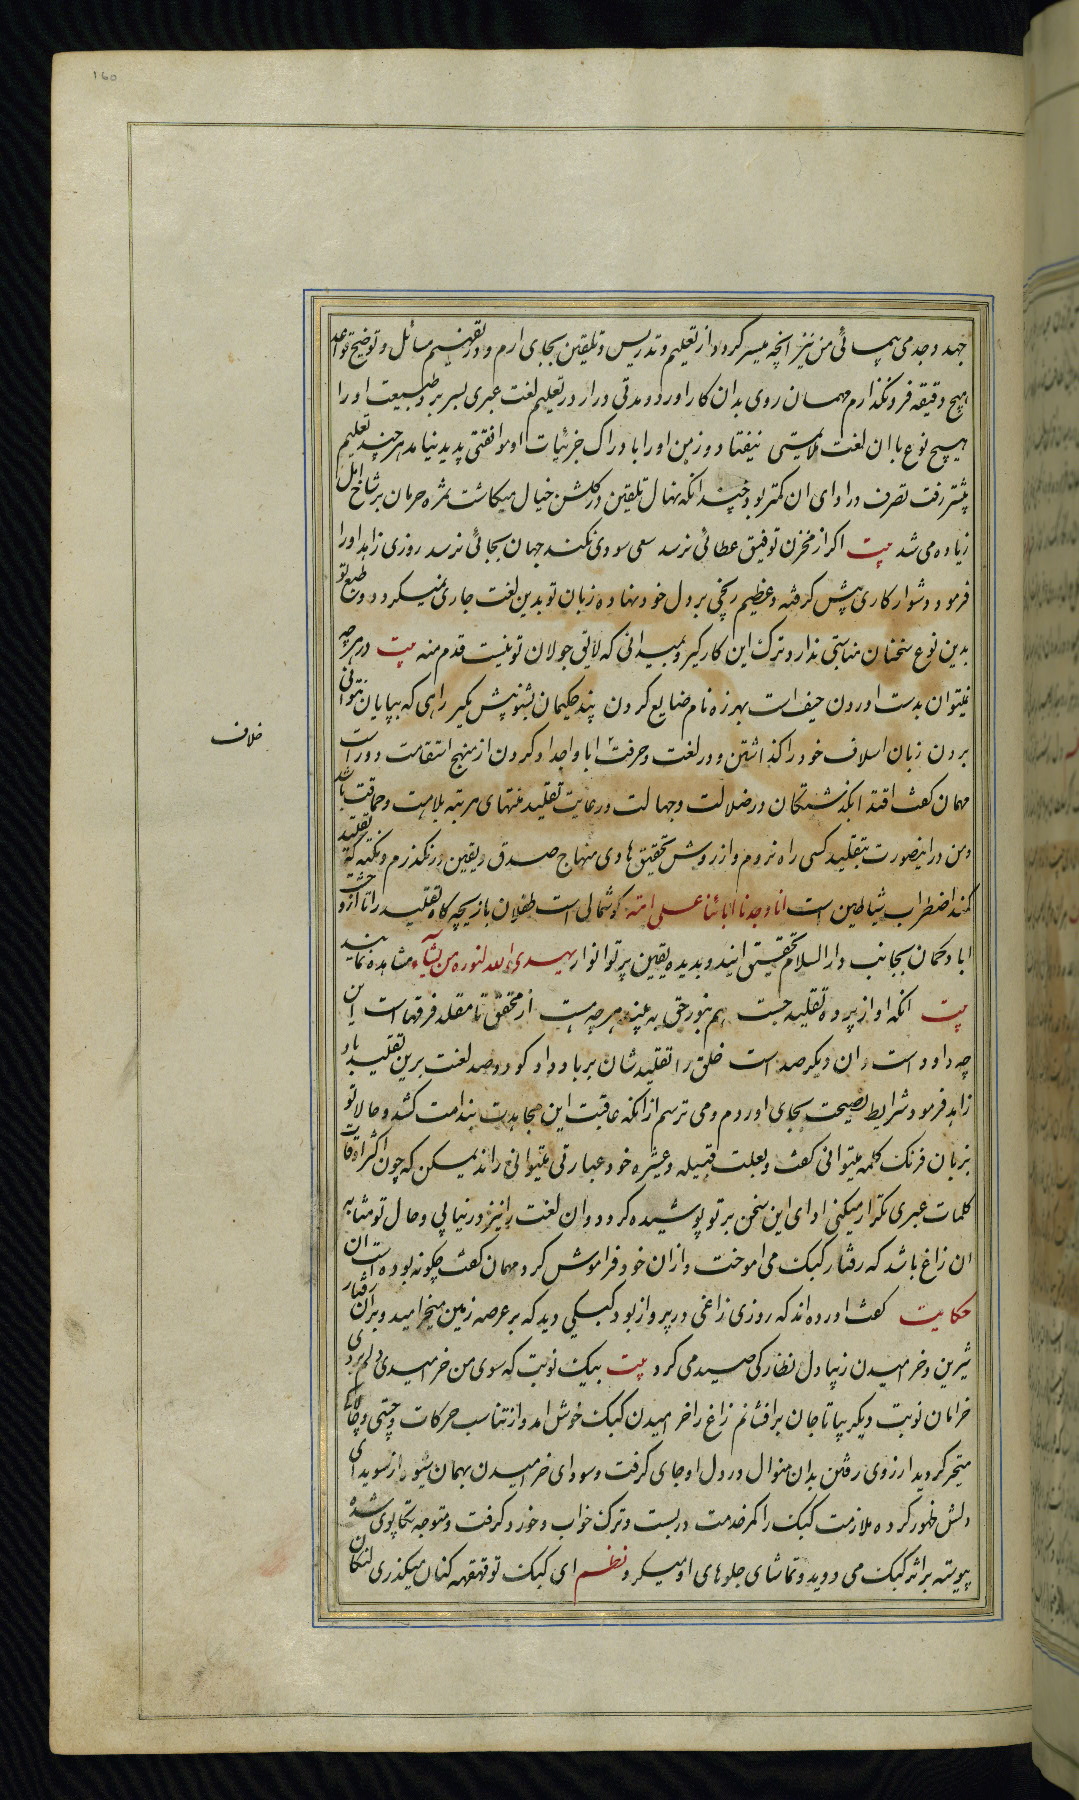 160
جهد و جد می پیمائی من نیز انچه میسر کردد از تعلیم و تدریس و تلقین بجای ارم و در تفهیم مسائل و توضیح قواعد
هیچ دقیقه فرونکذارم مهمان روی بدان کار اورد و مدتی دراز در تعلیم لغت عبری بسر برد طبیعت او را
هیچ نوع با ان لغت ملایمتی نیفتاد و ذهن او را با دراک جزئیات او موافقتی پدید نیامد هر چند تعلیم
پیشتر رفت تصرف در ادای ان کمتر بود چندانکه نهال تلقین در کلشن خیال میکاشت ثمره حرمان بر شاخ امل
زیاده می شد بیت اکر از مخزن توفیق عطائی نرسد سعی سودی نکند جهان بجائی نرسد روزی زاهد او را
فرمود دشوار کاری پیش کرفته و عظیم رنجی بر دل خود نهاده زبان تو بدین لغت جاری نمیکردد و طبع تو
بدین نوع سخنان مناسبتی ندارد ترک این کار کیر و بمیدانی که لایق جولان تو نیست قدم منه بیت در هر چه
نمیتوان بدست اوردن حیف است بهرزه نام ضایع کردن پند حکیمان بشنو پیش مکیر راهی که بپایان نتوانی
بردن زبان اسلاف خود را کذاشتن و در لغت و حرفت ابا و اجداد کردن از منهج استقامت دور است
مهمان کفت اقتدا بکذشتکان در ضلالت و جهالت و رعایت تقلید منتهای مرتبه بلاهت و حماقت باشد
و من در اینصورت بتقلید کسی راه نروم و از روش تحقیق هادی منهاج صدق و یقین در نکذرم و نکته که تقلید
کمند اضطراب شیاطین است انا وجدنا اباءنا علی امة کوشمالی است طفلان بازیچه کاه تقلید را تا از وحشت
اباد کمان بجانب دار السلام تحقیق ایند و بدیده یقین پرتو انوار یهدی الله لنوره من یشاء مشاهده نمایند
بیت انکه او از پرده تقلید جست هم بنور حق به بیند هر چه هست از محقق تا مقلد فرقهاست این
چه داود است و ان دیکر صداست خلق را تقلیدشان بر باد داد که دو صد لغت برین تقلید باد
زاهد فرمود شرایط نصیحت بجای اوردم و می ترسم از انکه عاقبت این مجاهدت بندامت کشد و حالا تو
بزبان فرنک کلمه میتوانی کفت و بلغت قبیله و عشیره خود عبارتی میتوانی راند یمکن که چون اکثر اوقات
کلمات عبری تکرار میکنی ادای این سخن بر تو پوشیده کردد و ان لغت را نیز در نیابی و حال تو مشابه
ان زاغ باشد که رفتار کبک می اموخت و از ان خود فراموش کرد مهمان کفت چکونه بوده است ان
حکایت کفت اورده اند که روزی زاغی در پرواز بود کبکی دید که بر عرصه زمین میخرامید و بدان رفتار
شیرین و خرامیدن زیبا دل نظارکی صید می کرد بیت بیک نوبت که سوی من خرامیدی دلم بردی
خرامان نوبت دیکر بیا تا جان برافشانم زاغ را خرامیدن کبک خوش امد و از تناسب حرکات و چستی و چالاکی
متحیر کردید ارزوی رفتن بدان منوال در دل او جای کرفت و سودای خرامیدن بهمان شیوه از سویدای
دلش ظهور کرده ملازمت کبک را کمر خدمت در بست و ترک خواب و خورد کرفت و متوجه تکاپوی شده
پیوسته بر اثر کبک می دوید و تماشای جلوهای او میکرد نظم ای کبک تو قهقهه کنان میکذری لنکان
خلاف